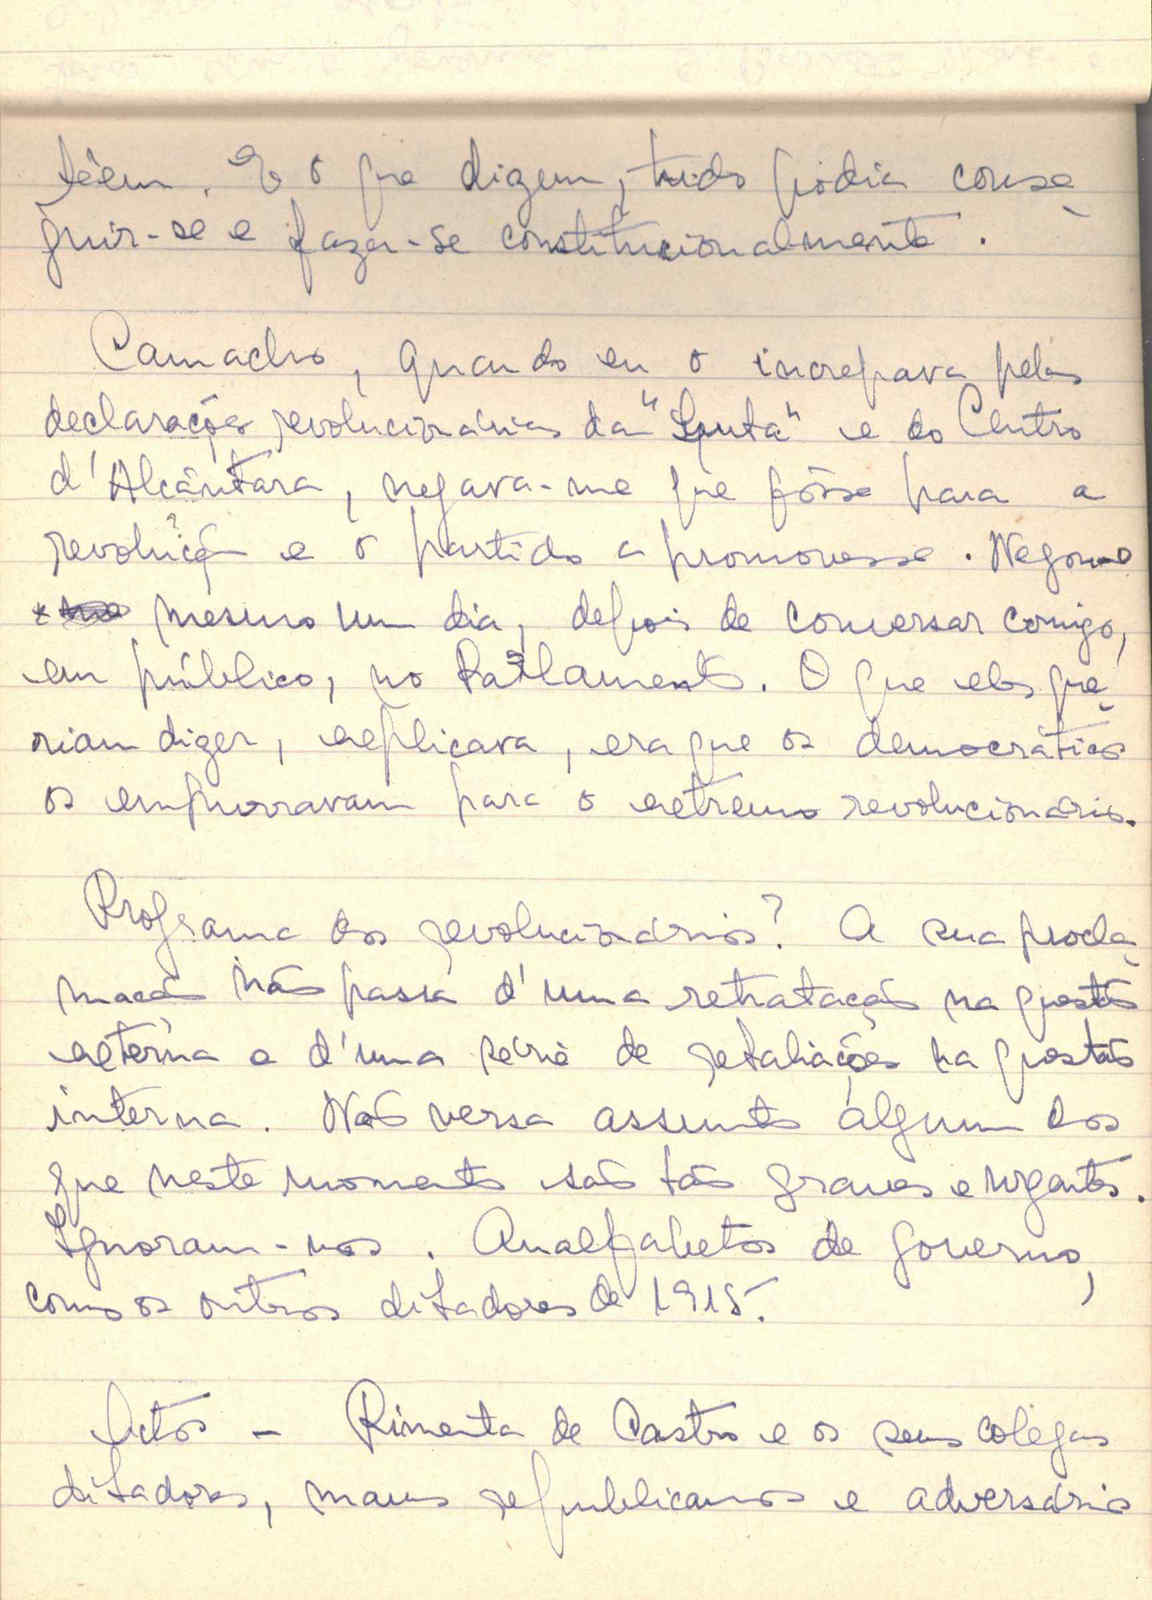 têem. E o que dizem, tudo podia conse-
guir-se e fazer-se constitucionalmente.
Camacho, quando eu o increpava pelas
declarações revolucionárias da "Lucta" e do Centro
d'Alcântara, negava-me que fôsse para a
revolução e o partido a promovesse. Negou-o
mesmo um dia, depois de conversar comigo,
em público, no Parlamento. O que eles que-
riam dizer, explicava, era que os democráticos
os empurravam para o extremo revolucionário.
Programa dos revolucionários? A sua procla-
mação não passa d'uma retratação na questão
externa e d'uma série de retaliações na questão
interna. Não versa assunto algum dos
que neste momento são tão graves e urgentes.
Ignoram-nos. Analfabetos de governo,
como os outros ditadores de 1915.
Pimenta de Castro e os seus colegas
ditadores, maus republicanos e adversários